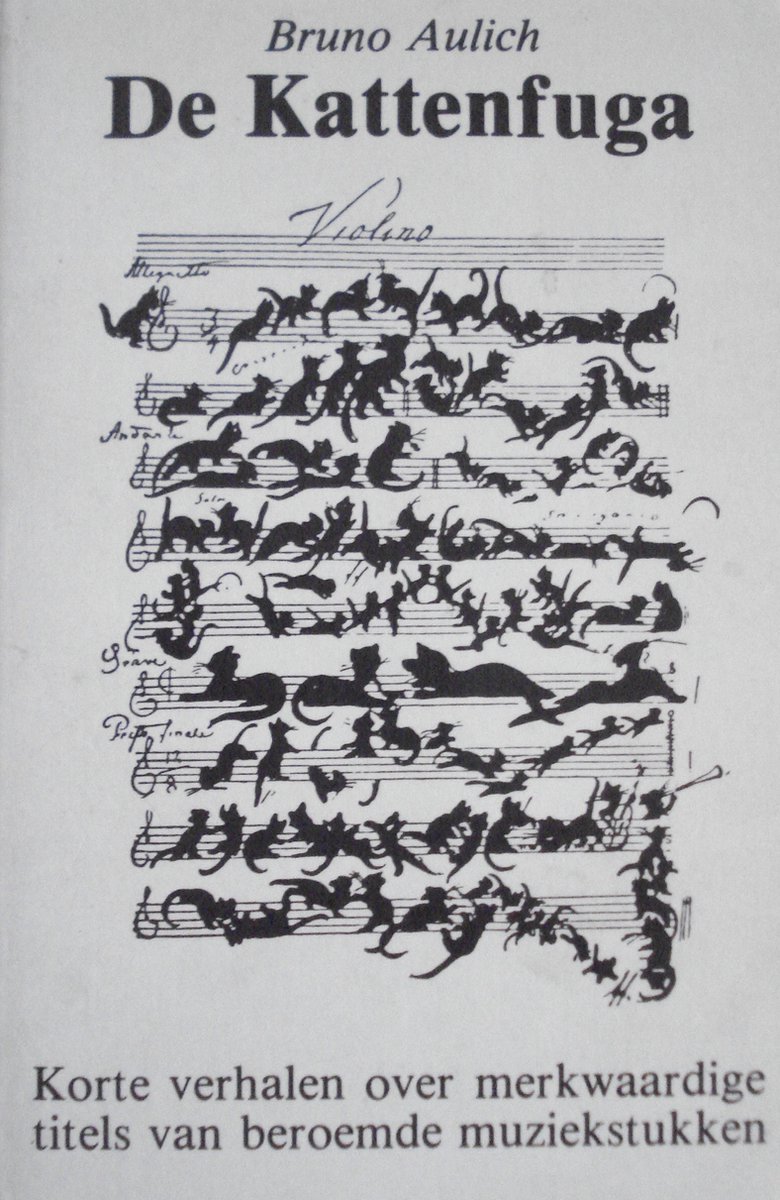 Bruno Aulich
De Kattenfuga
Violino
Allegretto
3
4
Andante
Solo
Grave
finale
12
8
H.
Korte verhalen over merkwaardige
titels van beroemde muziekstukken